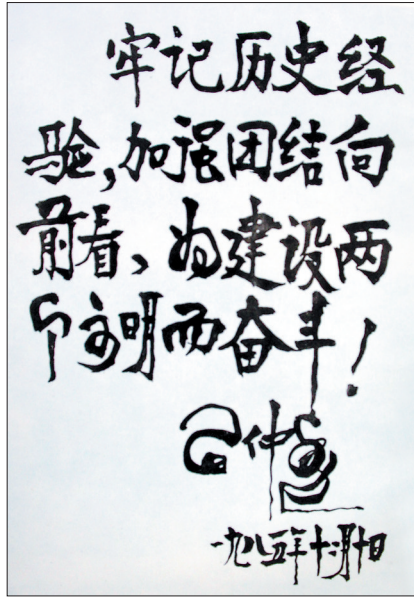 牢记历史经
验,加强团结向
前看、为建设两
个文明而奋斗!
仲
一九八五年十二月十日